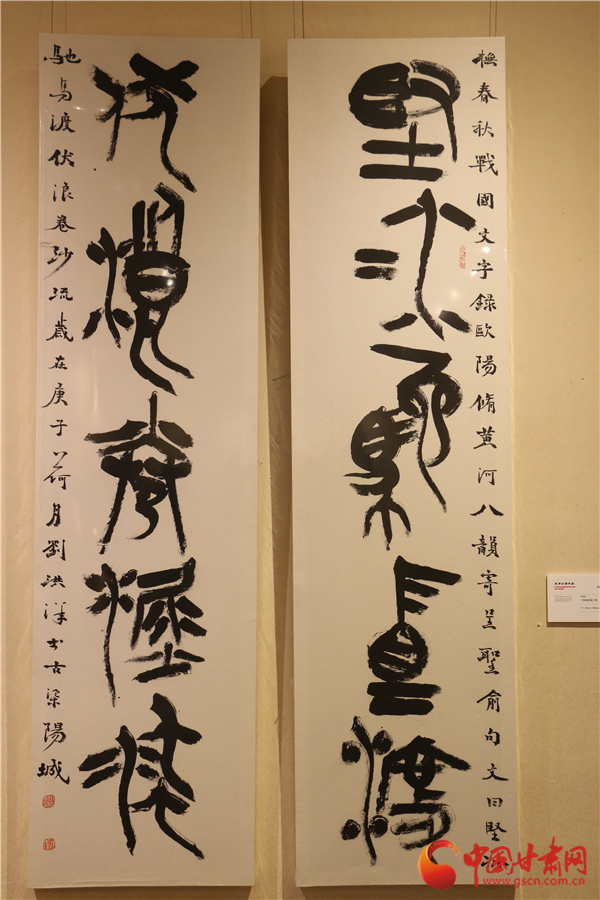 橅春秋戰國文字錄歐陽脩黄河八韻寄呈聖俞句文曰堅冰
堅冰馳馬渡
伏浪卷沙流
馳馬渡伏浪卷沙流歲在庚子荷月劉洪洋書古梁陽城
中国甘肃网
www.gscn.com.cn